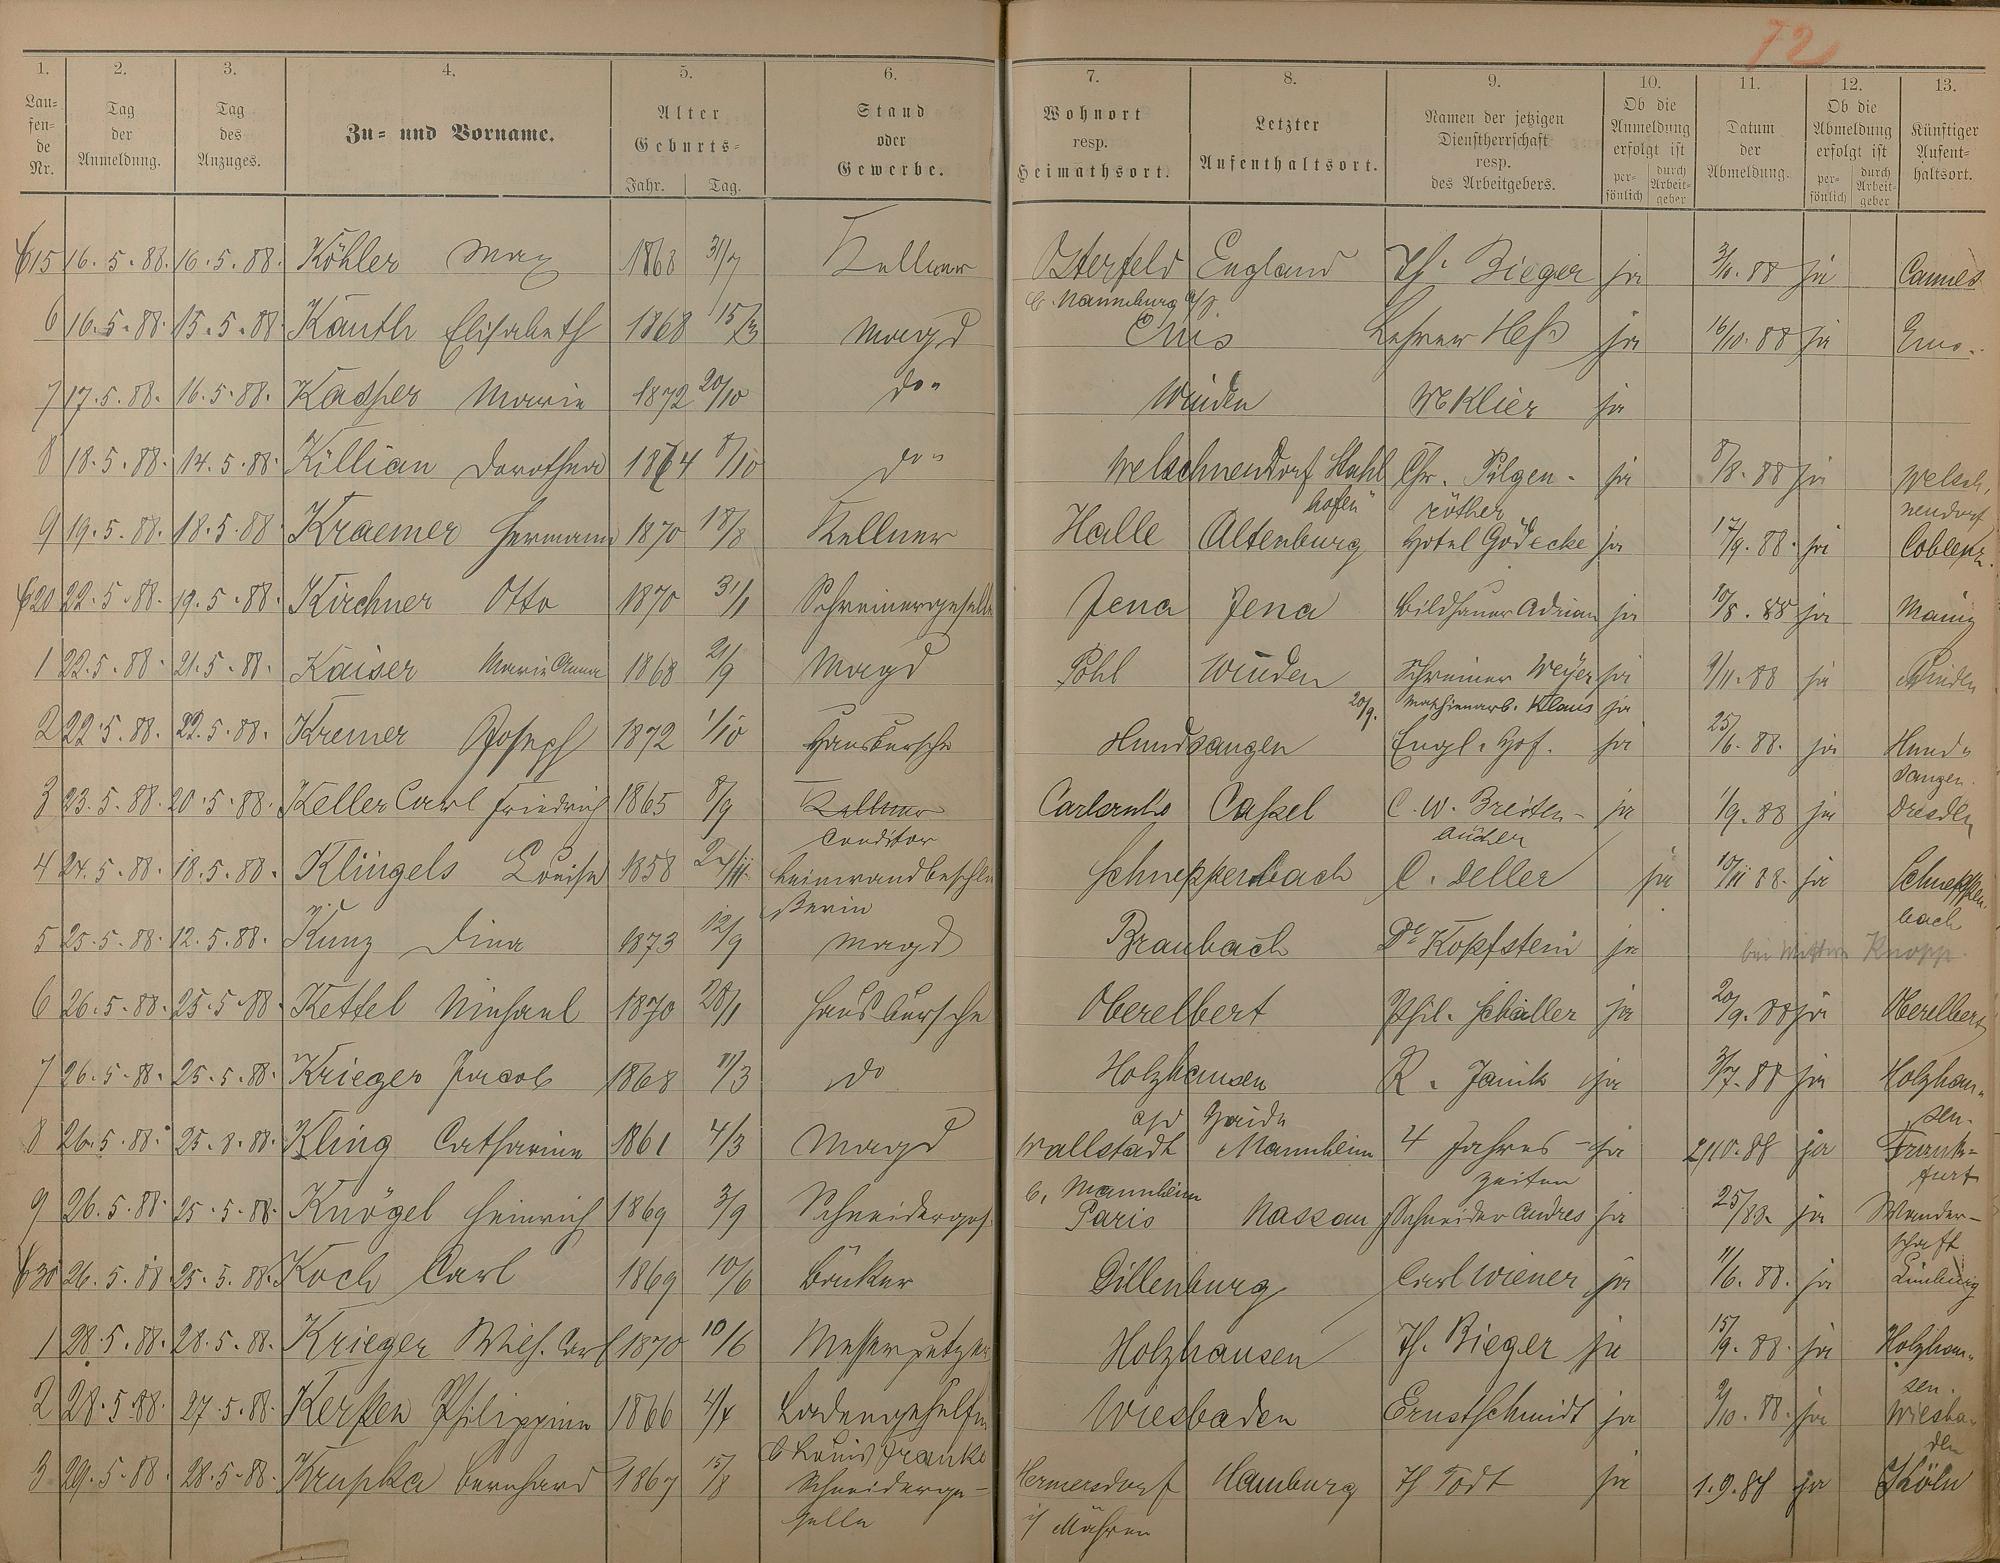 72
1. 2. 3. 4. 5. 6. 7. 8. 9. 10. 11. 12. 13.
Lau-fen-de Nr. Tag der Anmeldung. Tag des Anzuges. Zu- und Vorname. Alter Geburts- Jahr. Tag. Stand oder Gewerbe. Wohnort resp. Heimathsort. Letzter Aufenthaltsort. Namen der jetzigen Dienstherrschaft resp. des Arbeitgebers. Ob die Anmeldung erfolgt ist per-sönlich durch Arbeit-geber Datum der Abmeldung. Ob die Abmeldung erfolgt ist per-sönlich durch Arbeit-geber Künftiger Aufent-haltsort.
615 16.5.88. 16.5.88. Köhler Max 1868 31/7 Kellner Osterfeld England Th. Bieger ja 3/10.88 ja Cannes
b. Naumburg a/S
6 16.5.88. 15.5.88 Kauth Elisabeth 1868 15/3 Magd Ems Lehrer Heß ja 16/10.88 ja Ems.
7 17.5.88. 16.5.88. Kasper Marie 1872 20/10 do Winden W Klier ja
8 18.5.88. 14.5.88. Killian Dorothea 1864 8/10 do Welschneudorf Stahl Chr. Pilgen- ja 8/8.88 ja Welsch.
hofen röther neudorf
9 19.5.88. 18.5.88 Kraemer Hermann 1870 18/8 Kellner Halle Altenburg Hotel Gödecke ja 17/9.88. ja Coblenz.
620 22.5.88. 19.5.88. Kirchner Otto 1870 31/1 Schreinergeselle Jena Jena Bildhauer Adrian ja 10/8.88 ja Mainz
1 22.5.88. 21.5.88. Kaiser Maria Anna 1868 2/9 Magd Pohl Winden Schreiner Weyer ja 9/11.88 ja Winden
20/9. Maschienarb. Klaus ja
2 22.5.88. 22.5.88. Kremer Joseph 1872 1/10 Hausbursche Hundsangen Engl. Hof. ja 25/6.88. ja Hund-
sangen.
3 23.5.88. 20.5.88. Keller Carl Friedrich 1865 8/9 Kellner Carlsruhe Caßel C. W. Breiten- ja 1/9.88 ja Dresden
Conditor
4 24.5.88. 18.5.88. Klingels Louise 1858 Leinwandbeschlie Schneppenbach C. Deller ja 10/11 88. ja Schneppen.
ßerin bach
5 25.5.88. 12.5.88. Kunz Dina 1873 12/9 Magd Braubach Dr Kopfstein ja Knopp.
6 26.5.88. 25.5.88. Kettel Michael 1870 28/1 Hausbursche Oberelbert Phil. Schaller ja 20/9.88 ja Oberelbert
7 26.5.88. 25.5.88. Krieger Jacob 1868 11/3 do Holzhausen R. Janik ja 3/7.88 ja Holzhau-
a/d Haide sen.
8 26.5.88. 25.8.88. Kling Catharine 1861 4/3 Magd Wallstadt Mannheim 4 Jahres- ja 2/10.88 ja Frank-
b. Mannheim zeiten furt
9 26.5.88. 25.5.88. Knögel Heinrich 1869 3/9 Schneiderges. Paris Nassau Schneider Andres ja ja Wander-
schaft
630 26.5.88 25.5.88. Koch Carl 1869 10/6 Bäcker Dillenburg Carl Wiener ja 11/6.88. ja Limburg
1 28.5.88. 28.5.88. Krieger Wilh. Carl 1870 10/6 Messerputzer Holzhausen Th. Bieger ja 15/9.88. ja Holzhau-
sen.
2 28.5.88. 27.5.88. Kerßen Philippine 1866 4/4 Ladengehülfin Wiesbaden Ernst Schmidt ja 2/10.88. ja Wiesba-
b Louis Franke den
3 29.5.88. 28.5.88. Krupka Bernhard 1867 15/8 Schneiderge- Hermersdorf Hamburg Th Todt ja 1.9.88 ja Köln
selle i/ Mähren